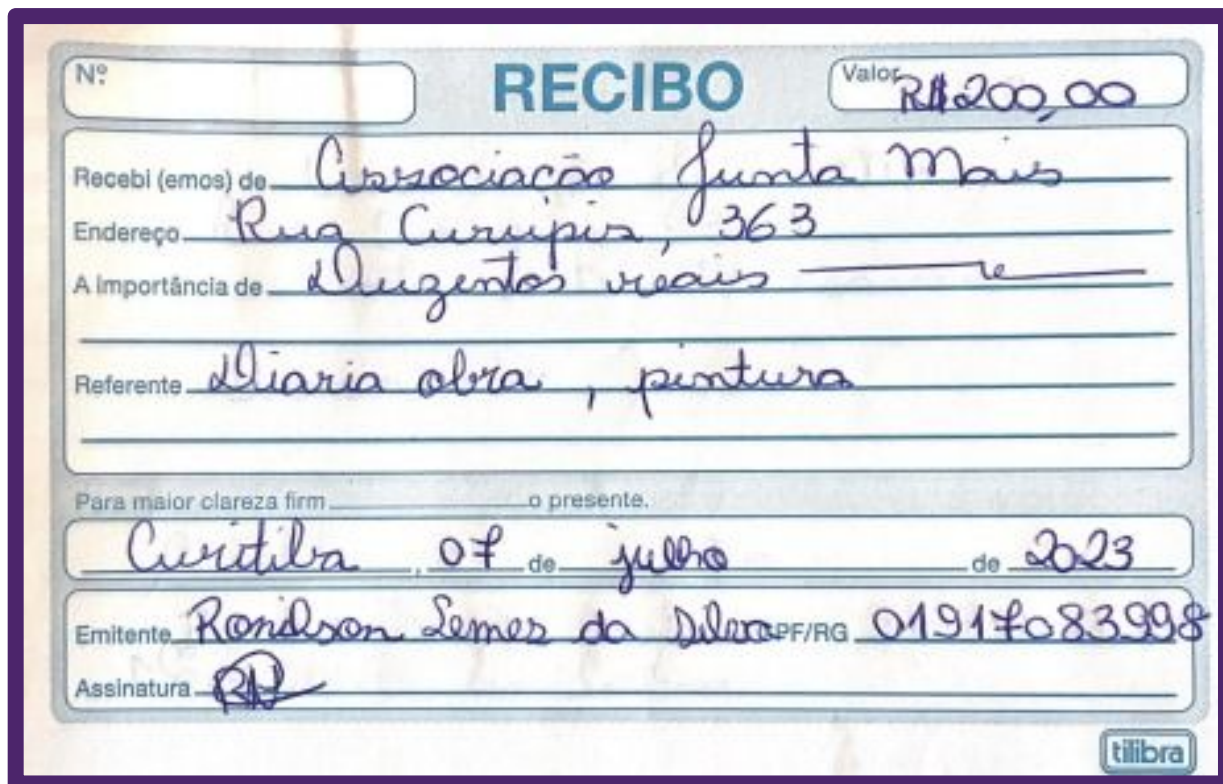 Nº RECIBO Valor R$200,00
Recebi (emos) de Associação Junta Mais
Endereço Rua Curupis, 363
A importância de Duzentos reais
Referente Diaria obra, pintura
Para maior clareza firm o presente.
Curitiba, 07 de julho de 2023
Emitente Ronilson Lemes da Silva CPF/RG 01917083998
Assinatura
tilibra